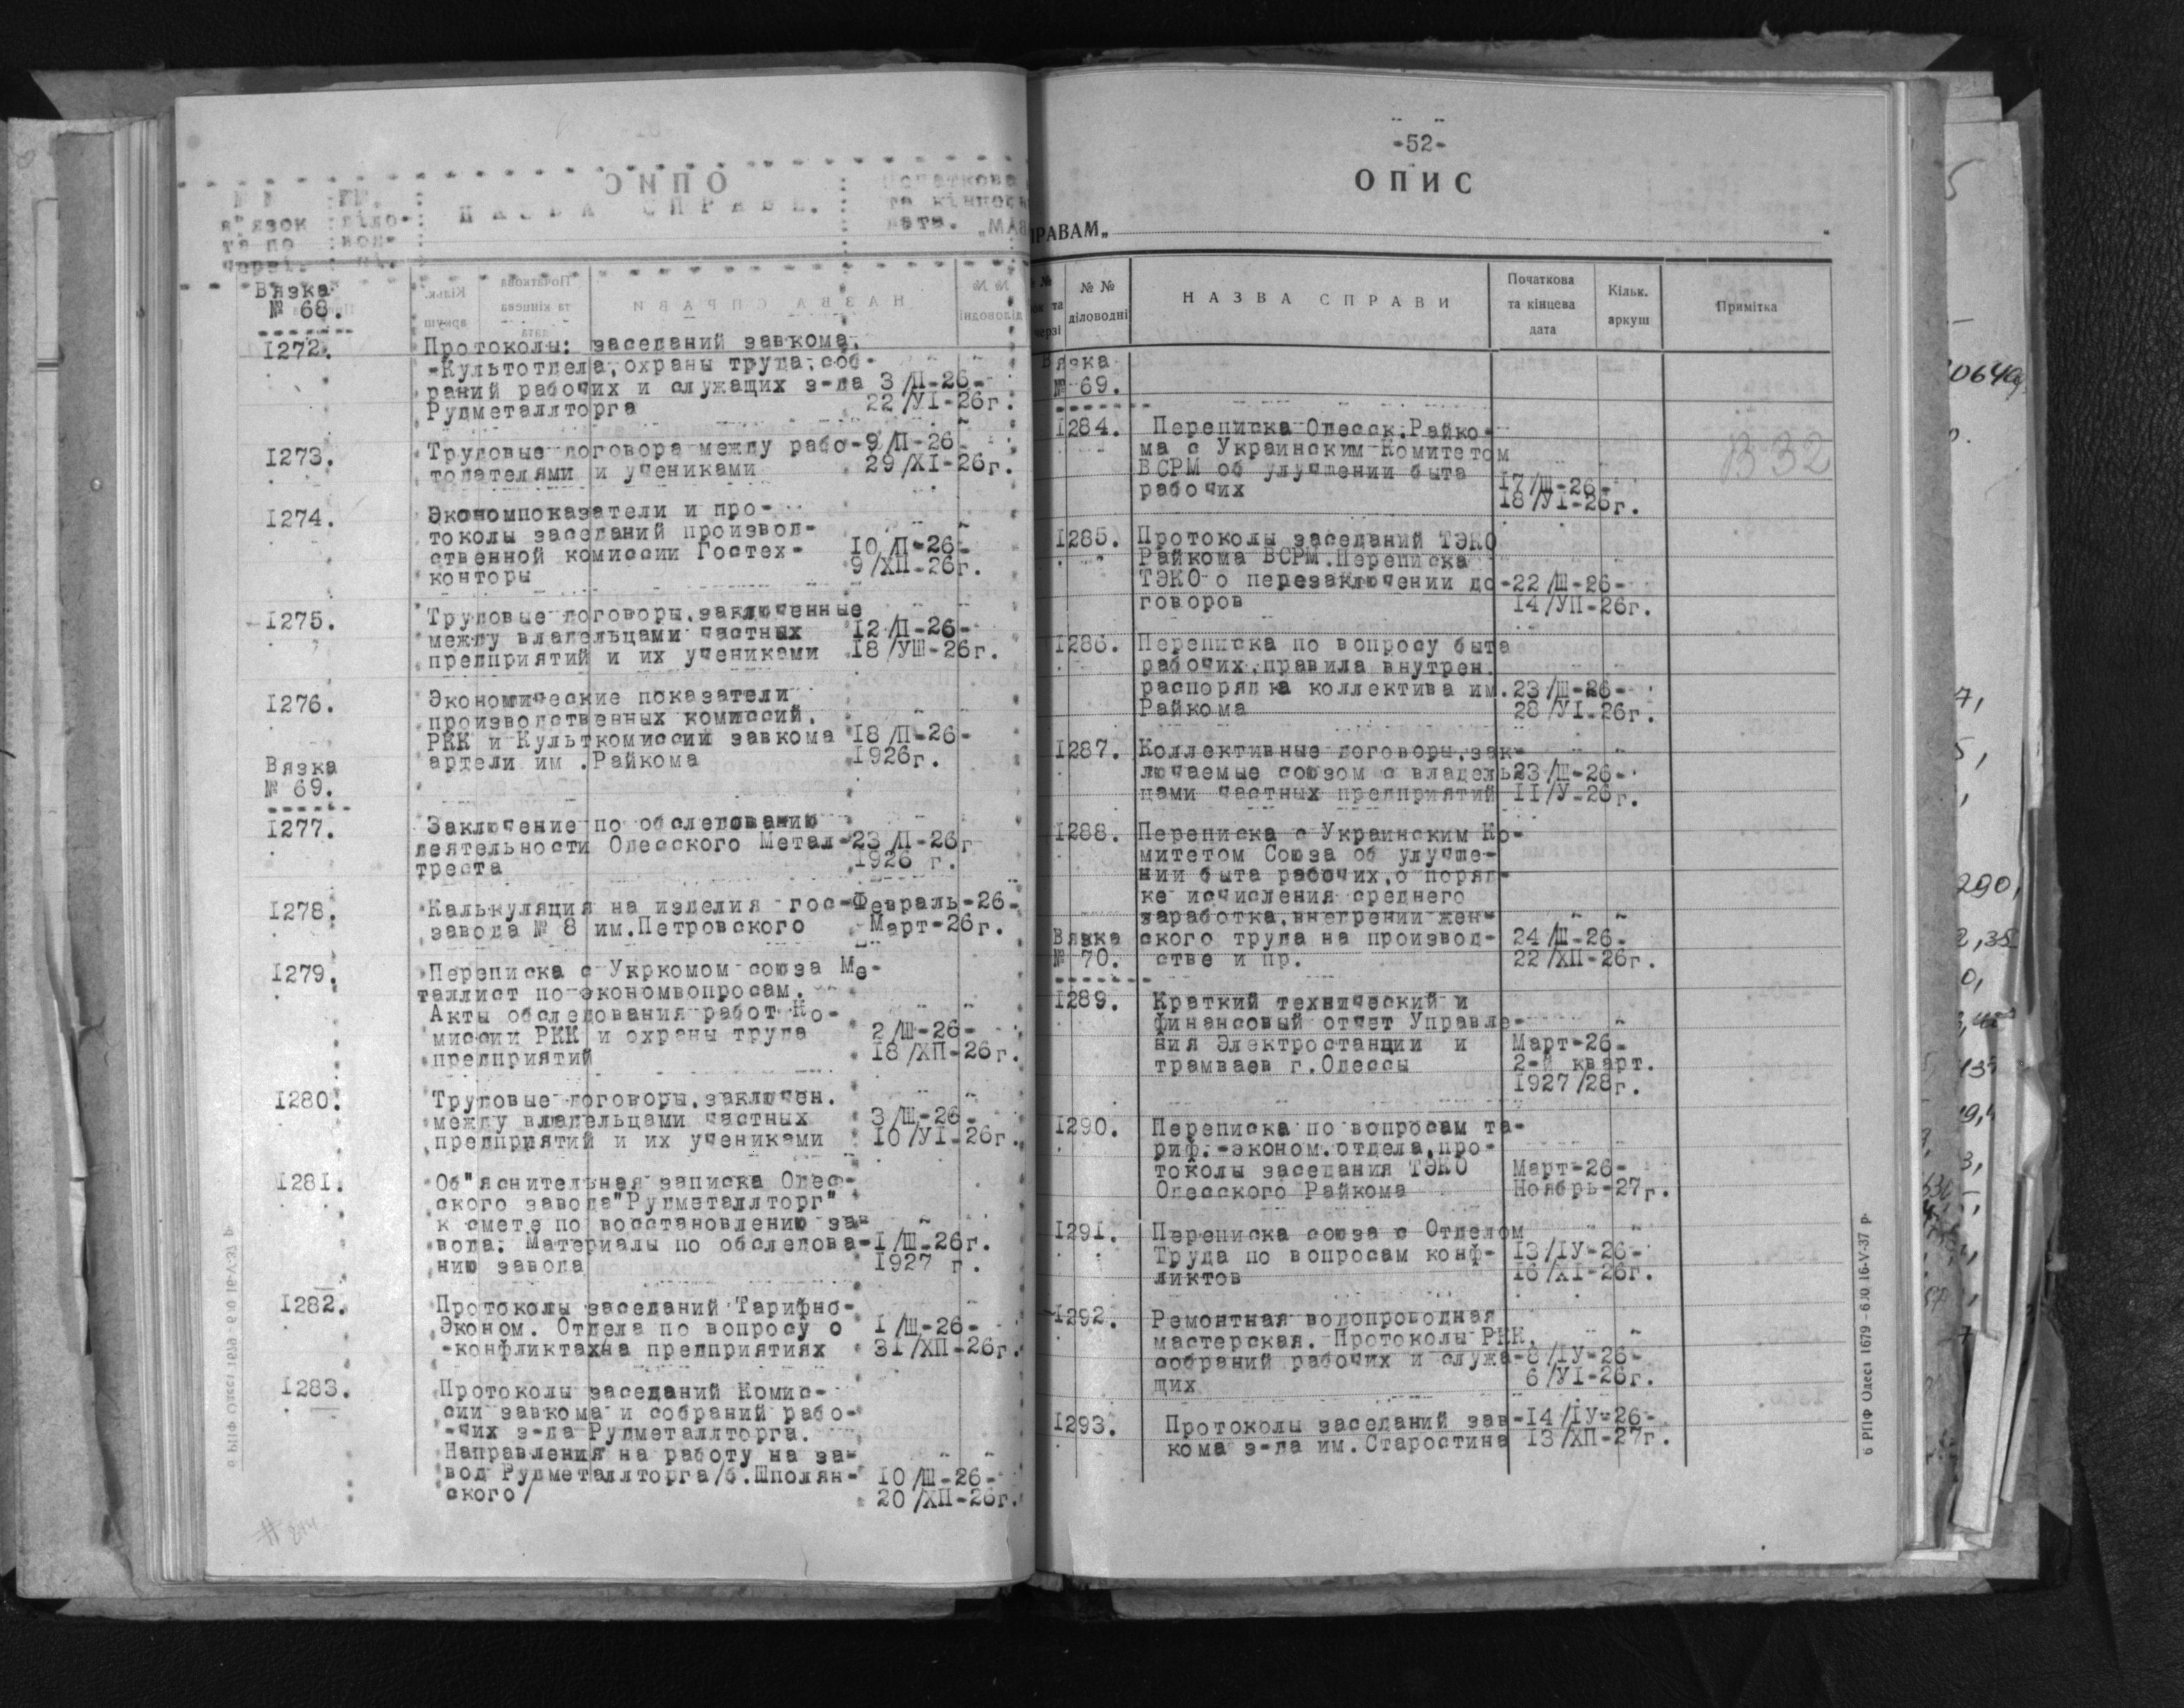 № №
в"язок
та по
черзі.
№№.
діло-
вод-
ні.
НАЗВА СПРАВИ.
Початкова
та кінцева
дата.
Вязка
№ 68.
1272. Протоколы: заседаний завкома,
-Культотдела, охраны труда, соб-
раний рабочих и служащих з-да 3/П-26-
Рудметаллторга 22/УІ-26г.
1273. Трудовые договора между рабо- 9/П-26-
тодателями и учениками 29/ХІ-26г.
1274. Экономпоказатели и про-
токолы заседаний производ-
ственной комиссии Гостех- 10/П-26-
конторы 9/ХП-26г.
1275. Трудовые договоры, заключенные
между владельцами частных 12/П-26-
предприятий и их учениками 18/УШ-26г.
1276. Экономические показатели
производственных комиссий,
РКК и Культкомиссии завкома 18/П-26-
артели им. Райкома 1926г.
Вязка
№ 69.
1277. Заключение по обследованию
деятельности Одесского Метал- 23/П-26г
треста 1926 г.
1278. Калькуляция на изделия гос- Февраль-26-
завода № 8 им.Петровского Март-26г.
1279. Переписка с Укркомом союза Ме-
таллист по экономвопросам.
Акты обследования работ Ко-
миссии РКК и охраны труда 2/Ш-26-
предприятий 18/ХП-26г.
1280. Трудовые договоры, заключен.
между владельцами частных 3/Ш-26-
предприятий и их учениками 10/УІ-26г.
1281. Об"яснительная записка Одес-
ского завода"Рудметаллторг"
к смете по восстановлению за-
вода. Материалы по обследова- 1/Ш-26г.
нию завода 1927 г.
1282. Протоколы заседаний Тарифно-
Эконом. Отдела по вопросу о 1/Ш-26-
-конфликтах/на предприятиях 31/ХП-26г.
1283. Протоколы заседаний Комис-
сии завкома и собраний рабо-
-чих з-да Рудметаллторга.
Направления на работу на за-
вод Рудметаллторга/б.Шполян- 10/Ш-26-
ского/ 20/ХП-26г.
-52-
ОПИС
ПРАВАМ„
№ №
діловодні
НАЗВА СПРАВИ
Початкова
та кінцева
дата
Кільк.
аркуш
Примітка
Вязка
№ 69.
1284. Переписка Одесск.Райко-
ма с Украинским Комитетом
ВСРМ об улучшении быта
рабочих 17/Ш-26-
18/УІ-26г.
В32
1285. Протоколы заседаний ТЭКО
Райкома ВСРМ.Переписка
ТЭКО о перезаключении до- 22/Ш-26-
говоров 14/УП-26г.
1286. Переписка по вопросу быта
рабочих,правила внутрен.
распорядка коллектива им. 23/Ш-26-
Райкома 28/УІ-26г.
1287. Коллективные договоры, зак-
лючаемые союзом с владель- 23/Ш-26-
цами частных предприятий 11/У-26г.
1288. Переписка с Украинским Ко-
митетом Союза об улучше-
нии быта рабочих,о поряд-
ке исчисления среднего
заработка,внедрении жен-
ского труда на производ- 24/Ш-26-
стве и пр. 22/ХП-26г.
Вязка
№ 70.
1289. Краткий технический и
финансовый отчет Управле-
ния Электростанции и Март-26-
трамваев г.Одессы 2-й кварт.
1927/28г.
1290. Переписка по вопросам та-
риф.-эконом.отдела,про-
токолы заседания ТЭКО Март-26-
Одесского Райкома Ноябрь-27г.
1291. Переписка союза с Отделом
Труда по вопросам конф- 13/ІУ-26-
ликтов 16/ХІ-26г.
1292. Ремонтная водопроводная
мастерская. Протоколы РКК,
собраний рабочих и служа- 8/ІУ-26-
щих 6/УІ-26г.
1293. Протоколы заседаний зав- 14/ІУ-26-
кома з-да им.Старостина 13/ХП-27г.